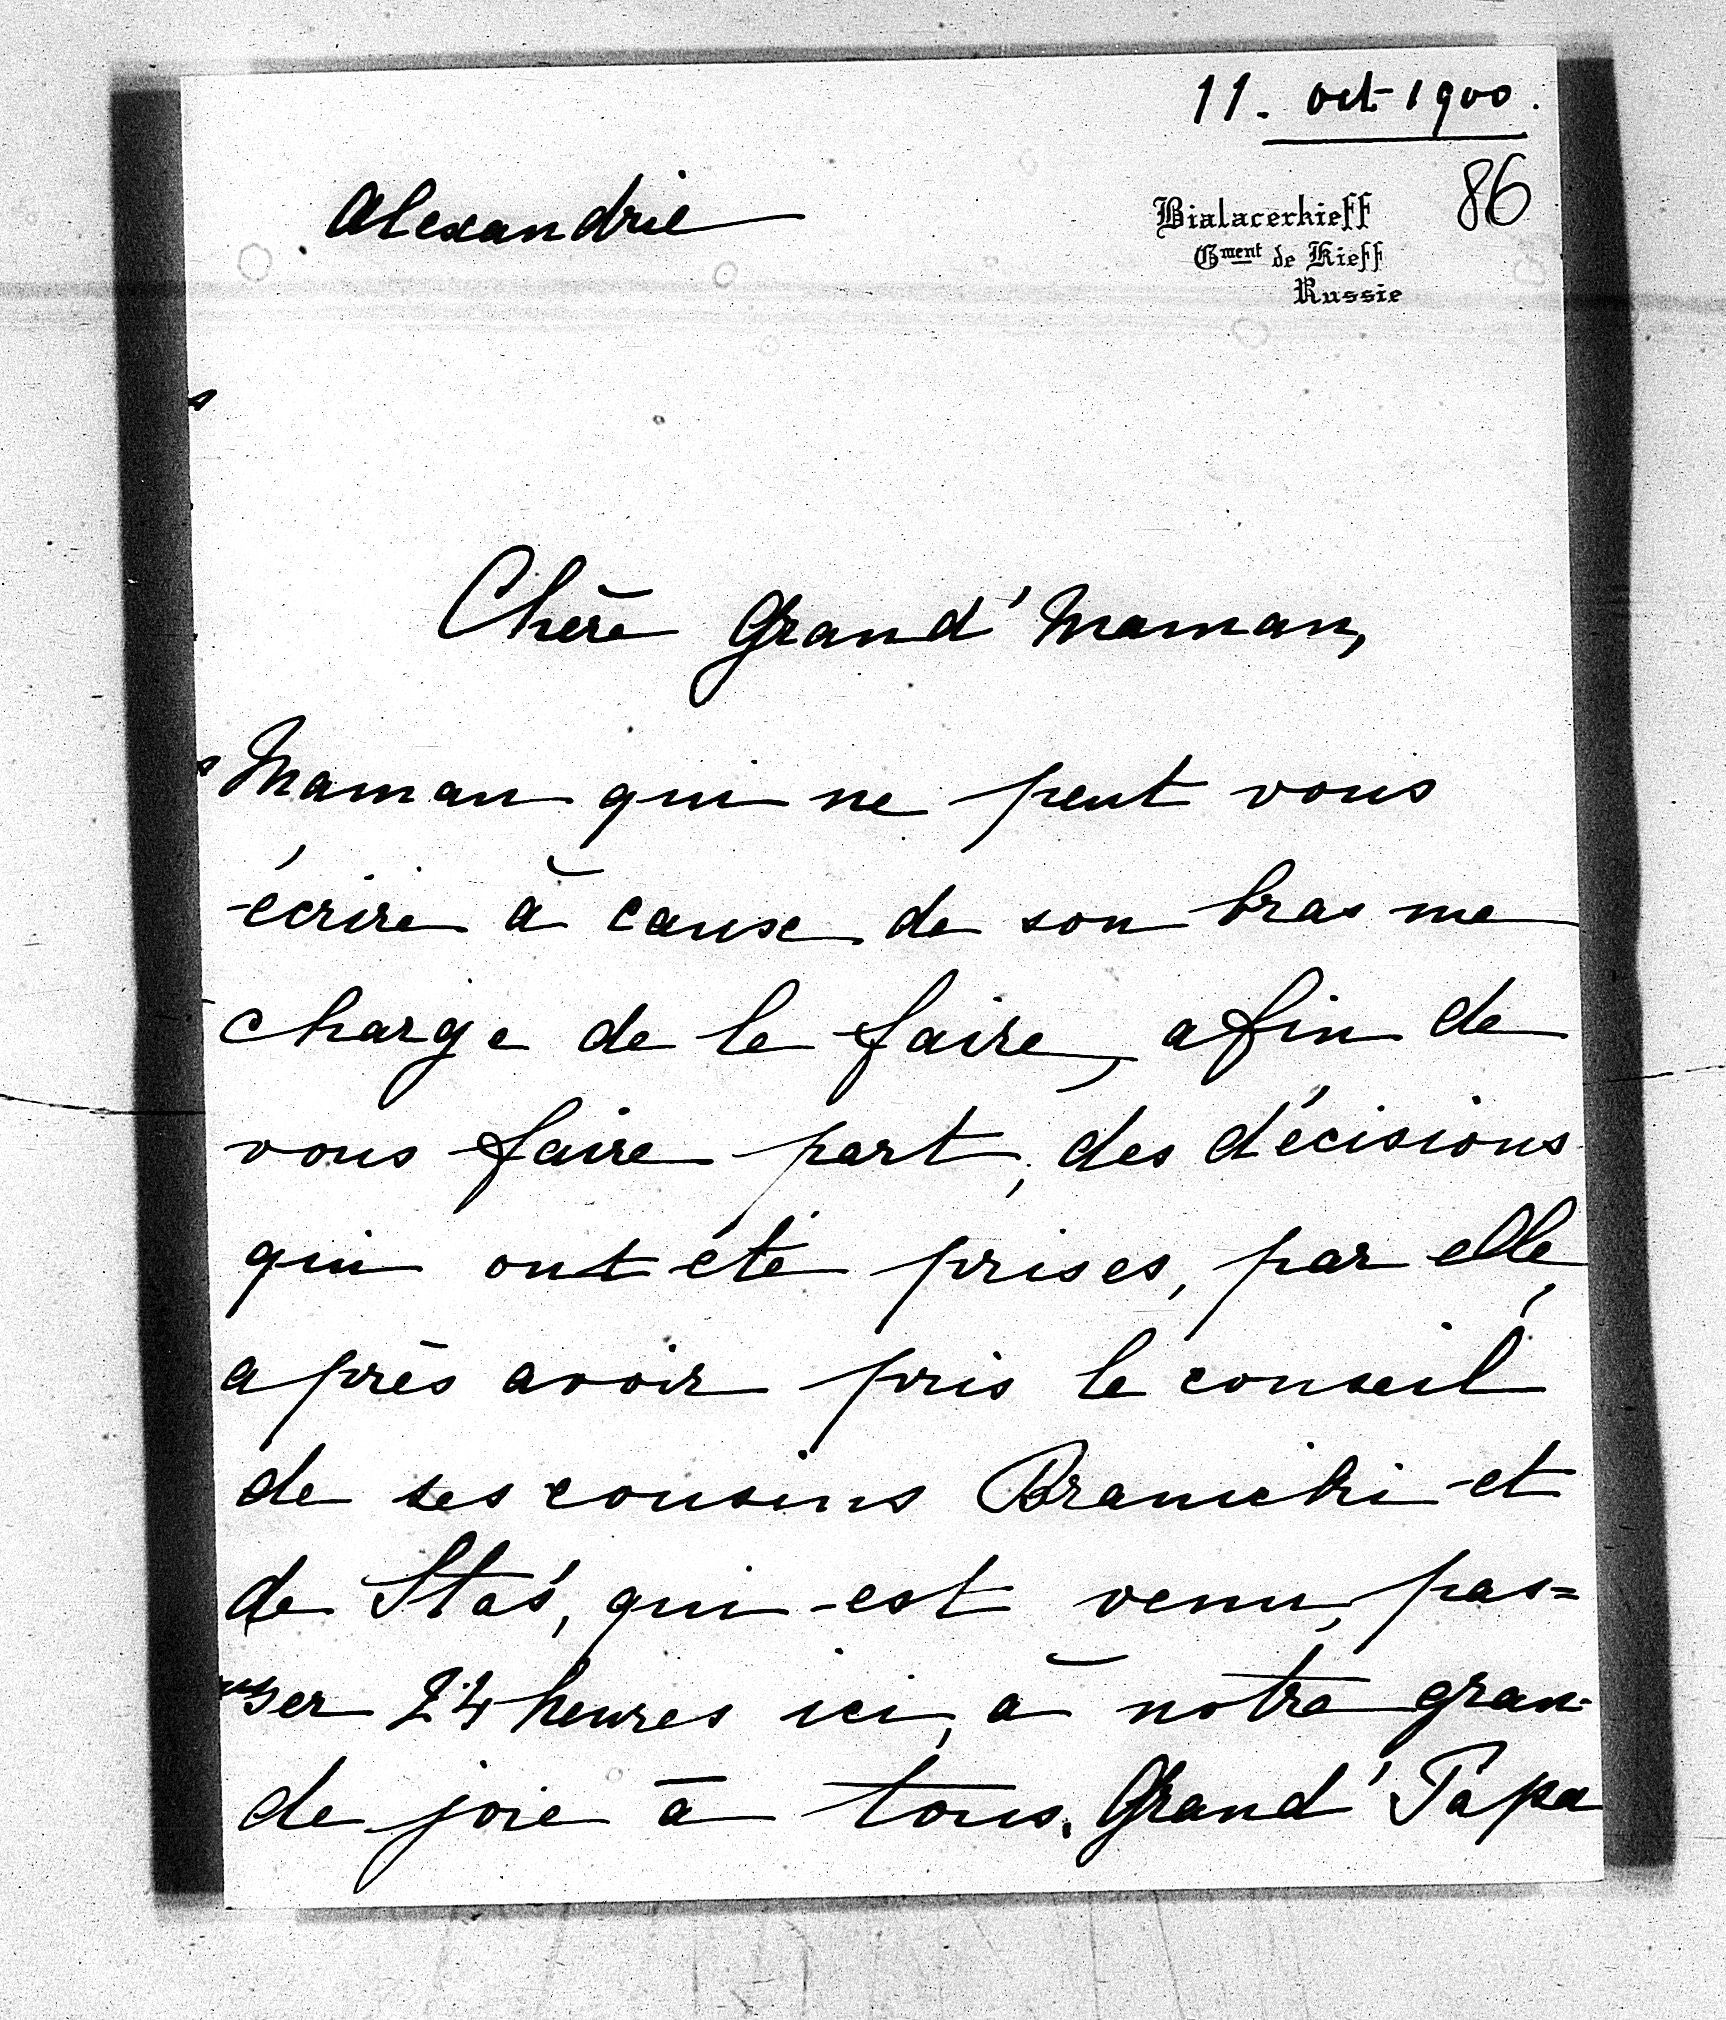 11. oct 1900.
86
Alexandrie
Bialacerkieff
Gment de Kieff
Russie
Chère Grand'Maman,
Maman qui ne peut vous
écrire à cause de son bras me
charge de le faire, afin de
vous faire part, des décisions
qui ont été prises, par elle,
après avoir pris le conseil
de ses cousins Branicki et
de Staś, qui est venu, pas=
ser 24 heures ici, à notre gran-
de joie à tous. Grand'Papa